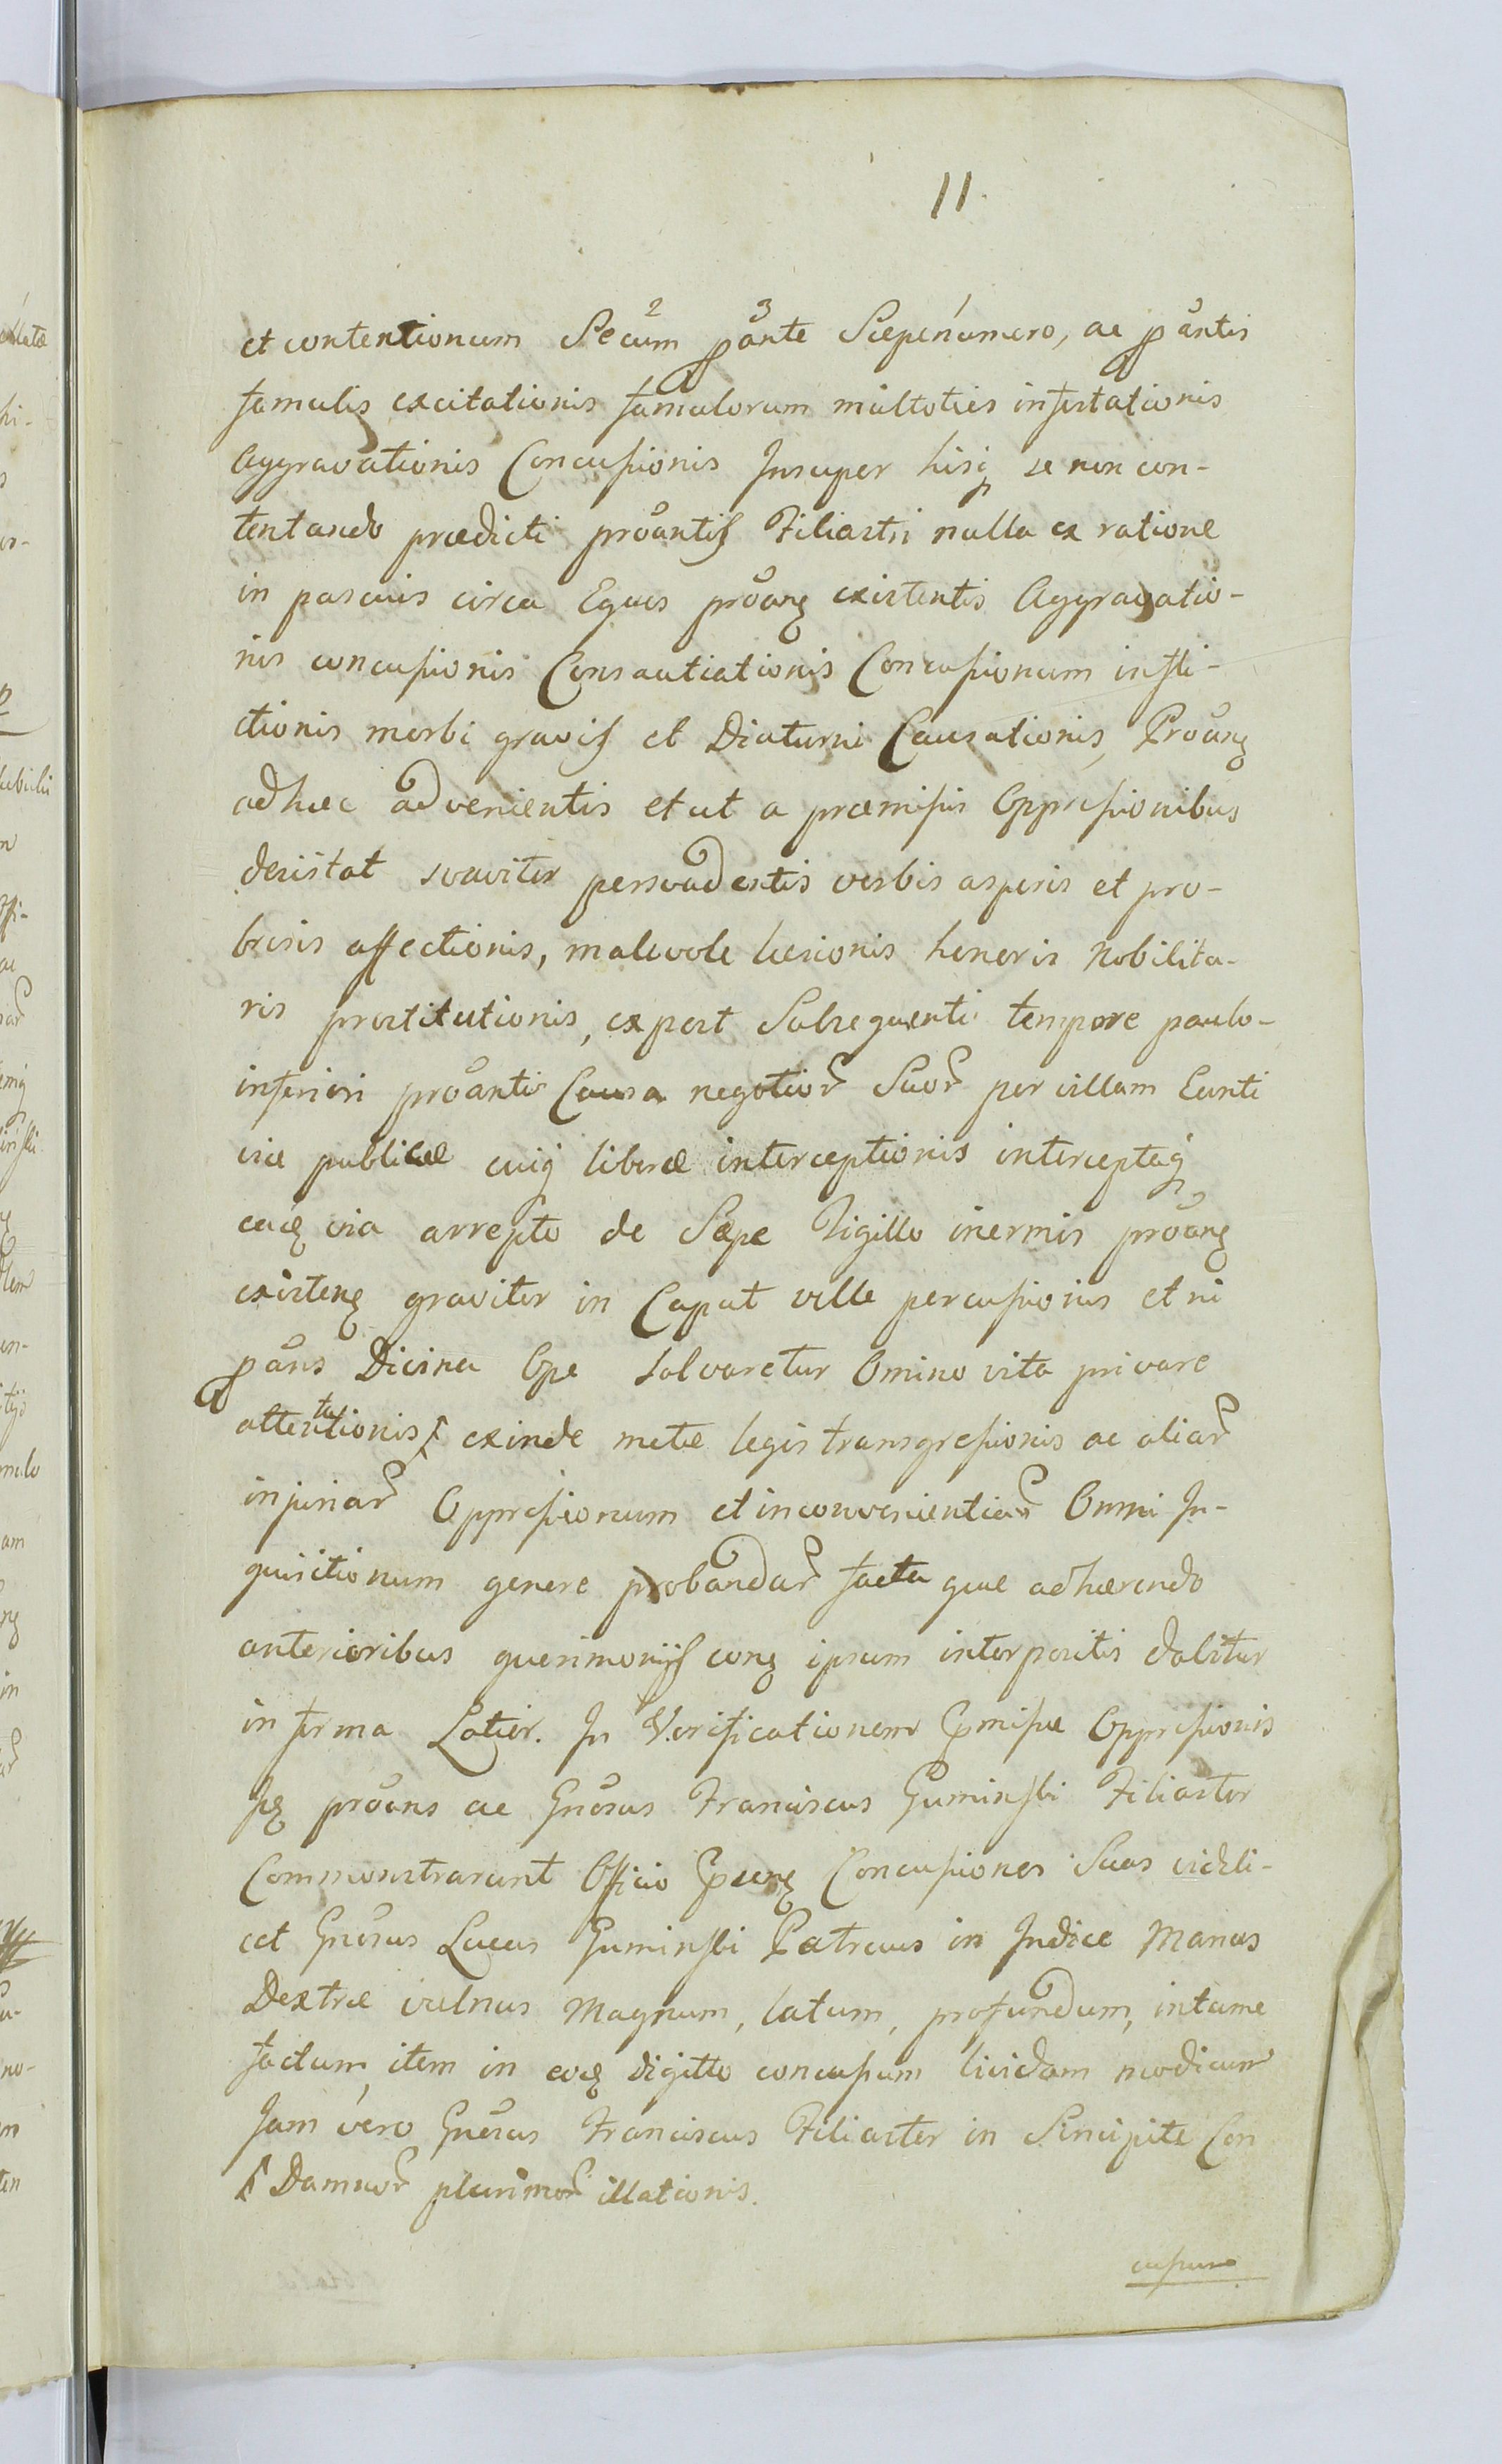 11.
et contentionum Secum pante Sæpenumero, ac pantis
famulis excitationis famulorum multoties infestationis
Aggravationis Concussionis Insuper hisq se non con-
tentando prædicti proantis Filiastri nulla ex ratione
in pascuis circa Equos proang existentis Aggravatio-
nis concussionis Consauciationis Concussionum infli-
ctionis morbi gravis et Diaturni Causationis, Proang
adhuc advenientis et ut a præmissis Oppressionibus
desistat svaviter persvadentis verbis asperis et pro-
brosis affectionis, malevole læsionis honoris Nobilita-
ris prostitutionis, ex post Subsequenti tempore paulo-
inferiori proantis Causa negotior Suor per villam Eunti
viæ publicæ cuiq liberæ interceptionis interceptaq
eaq via arrepto de Sæpe Tigillo inermis proang
existeng graviter in Caput velle percussionis et ni
pans Divina Ope salvaretur Omino vita privare
attentationis exinde metæ legis transgressionis ac aliar
injuriar Oppressionum et inconvenientiar Omni In-
quisitionum genere probandar facta quæ adhærendo
anterioribus querimoniis cong ipsum interpositis dabitur
in forma Latior. In Verificationem Pmissæ Oppressionis
sq proans ac Gnosus Franciscus Guminski Filiaster
Commonstrarunt Officio Pseng Concussiones Suas videli-
cet Gnosus Lucas Guminski Patreus in Indice Manus
Dextræ vulnus Magnum, latum, profundum, intume
factum, item in eoq digitto concussum lividum modicum
Jam vero Gnosus Franciscus Filiaster in Sincipite Con
Damnor plurimor illationis.
cussum